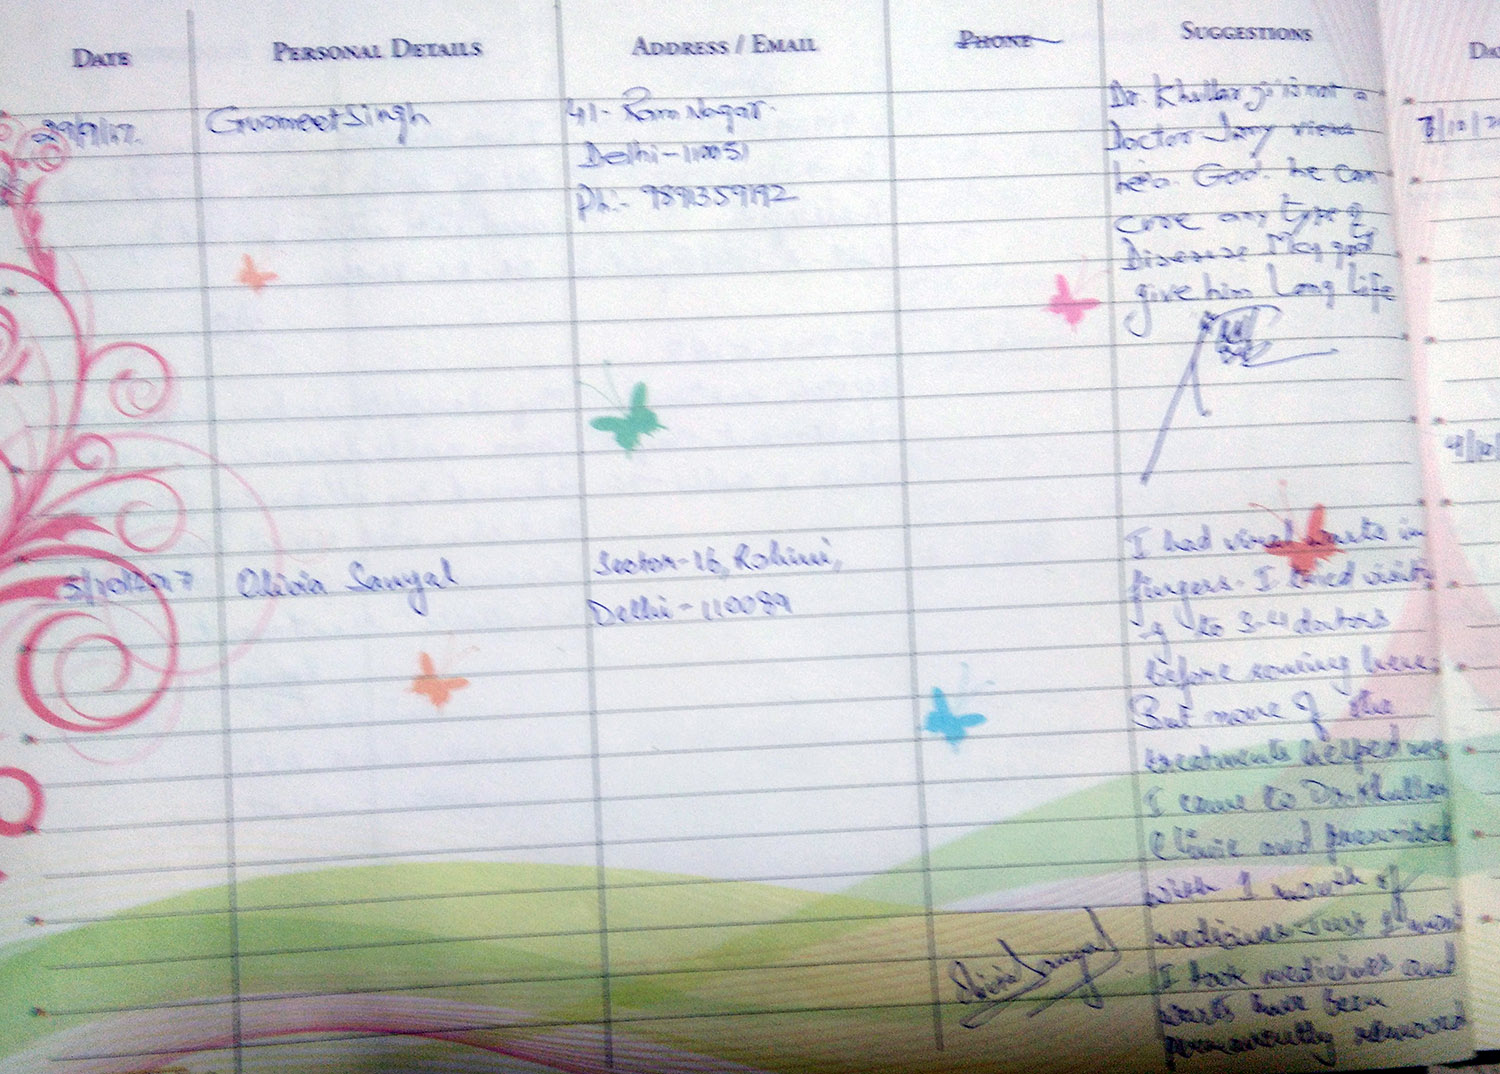 DATE PERSONAL DETAILS ADDRESS / EMAIL PHONE SUGGESTIONS
29/9/17. Gurmeet Singh 41- Ram Nagar.
Delhi-110051
Ph:-
Dr. Khullar ji is not a
Doctor In my view
he is God. he can
cure any type of
Disease May god
give him Long Life
5/10/2017 Olivia Sanyal Sector-16, Rohini,
Delhi-110089
I had viral warts in
fingers. I tried visitin
-g to 3-4 doctors
before coming here.
But none of the
treatments helped me
I came to Dr. Khullar
Clinic and prescribed
with 1 month of
medicines Just 1 mon
I took medicines and
warts have been
permanently removed
Olivia Sanyal